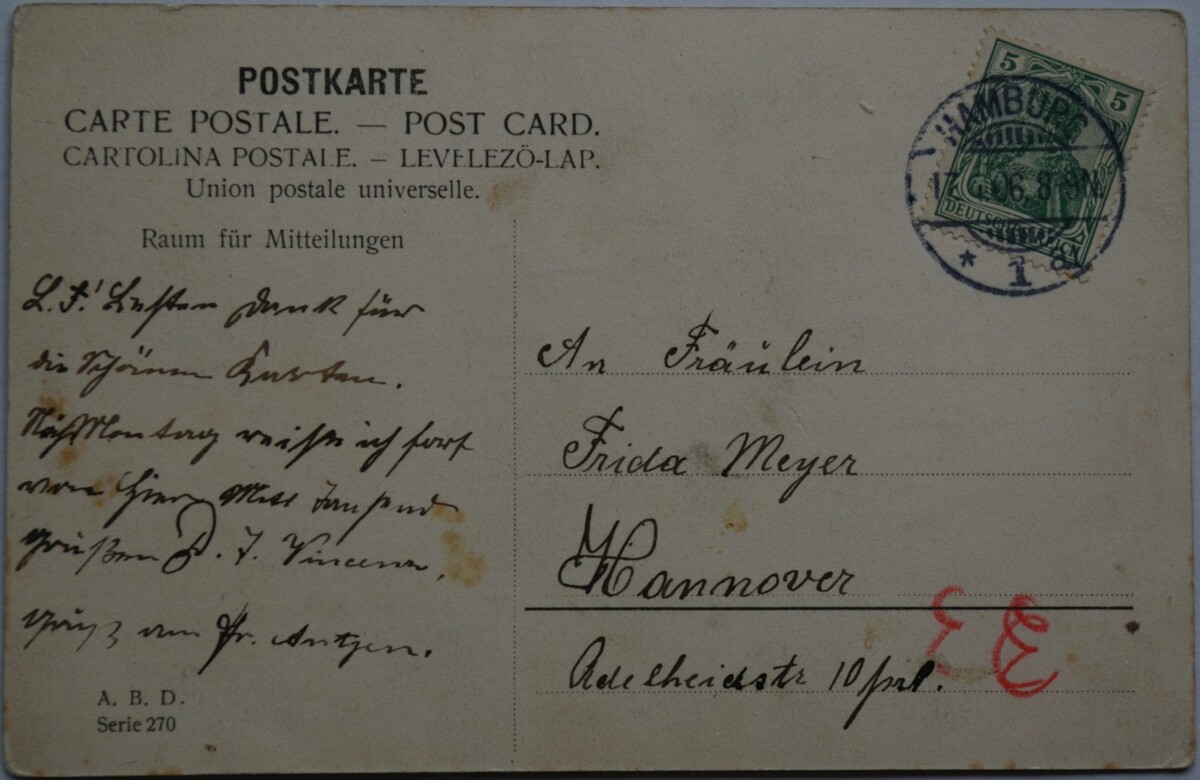 POSTKARTE
CARTE POSTALE. — POST CARD.
CARTOLINA POSTALE. – LEVELEZÖ-LAP.
Union postale universelle.
Raum für Mitteilungen
L. F.! Besten Dank für
die Schönen Karten.
Montag reise ich fort
von hier Mit Tausend
Grüßen D. J.
Gruß an Fr.
A. B. D.
Serie 270
5 5
DEUTSCHES REICH
HAMBURG
17. 06. 8-9N.
* 1 a
An Fräulein
Frida Meyer
Hannover
Adelheidstr 10